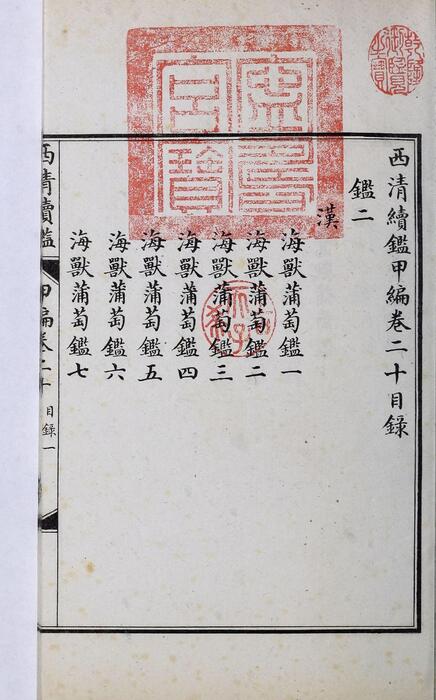 西清續鑑甲編卷二十目錄
鑑二
漢
海獸蒲萄鑑一
海獸蒲萄鑑二
海獸蒲萄鑑三
海獸蒲萄鑑四
海獸蒲萄鑑五
海獸蒲萄鑑六
海獸蒲萄鑑七
西清續鑑
甲編卷二十
目錄一